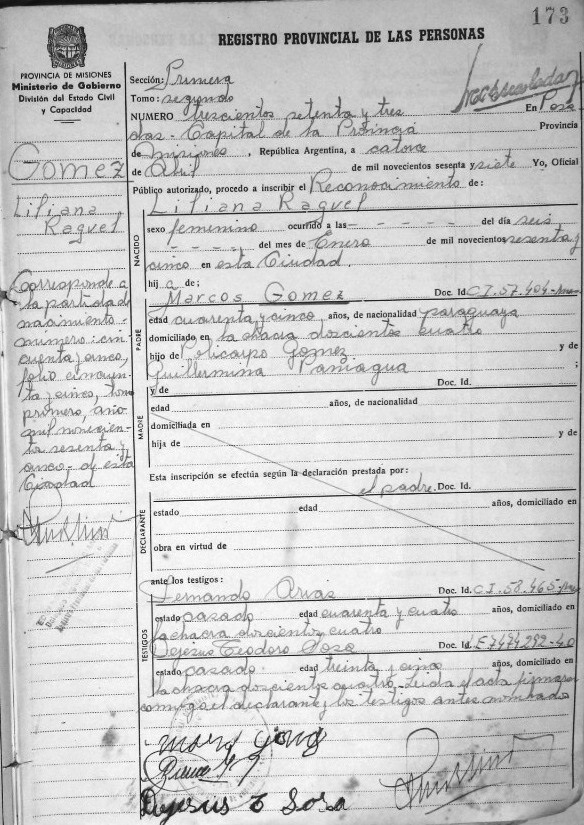 173
REGISTRO PROVINCIAL DE LAS PERSONAS
PROVINCIA DE MISIONES
Ministerio de Gobierno
División del Estado Civil
y Capacidad
Gomez
Liliana
Raquel
Corresponde a
la partida de
nacimiento
numero: cin
cuenta y cinco,
folio cincuen
ta y cinco, tomo
primero, año
mil novecien-
to sesenta y
cinco - de esta
Ciudad
Sección: Primera
Tomo: segundo
NUMERO trescientos setenta y tres En Posa
das - Capital de la Provincia Provincia
de Misiones, República Argentina, a catorce
de Abril de mil novecientos sesenta y siete Yo, Oficial
Público autorizado, procedo a inscribir el Reconocimiento de:
NACIDO
Liliana Raquel
sexo femenino ocurrido a las - - - - - del día seis
- - - - - del mes de Enero de mil novecientos sesenta y
cinco en esta Ciudad.
hij a de;
PADRE
Marcos Gomez Doc. Id. C.I. 57.404
edad cuarenta y cinco años, de nacionalidad paraguaya
domiciliado en la chacra doscientos cuatro
hijo de Policarpo Gomez
Guillermina Paniagua ;
y de Doc. Id.
MADRE
edad años, de nacionalidad
domiciliada en
hija de y de
Esta inscripción se efectúa según la declaración prestada por:
el padre. Doc. Id.
DECLARANTE
estado edad años, domiciliado en
obra en virtud de
ante los testigos:
TESTIGOS
Fernando Arias Doc. Id. C.I. 58.465
estado casado edad cuarenta y cuatro años, domiciliado en
la chacra doscientos cuatro
Dejesus Teodoro Sosa Doc. Id. E7474292
estado casado edad treinta y cinco años, domiciliado en
la chacra doscientos cuatro. Leida el acta firmaron
conmigo el declarante y los testigos antes nombrados
Dejesus T Sosa